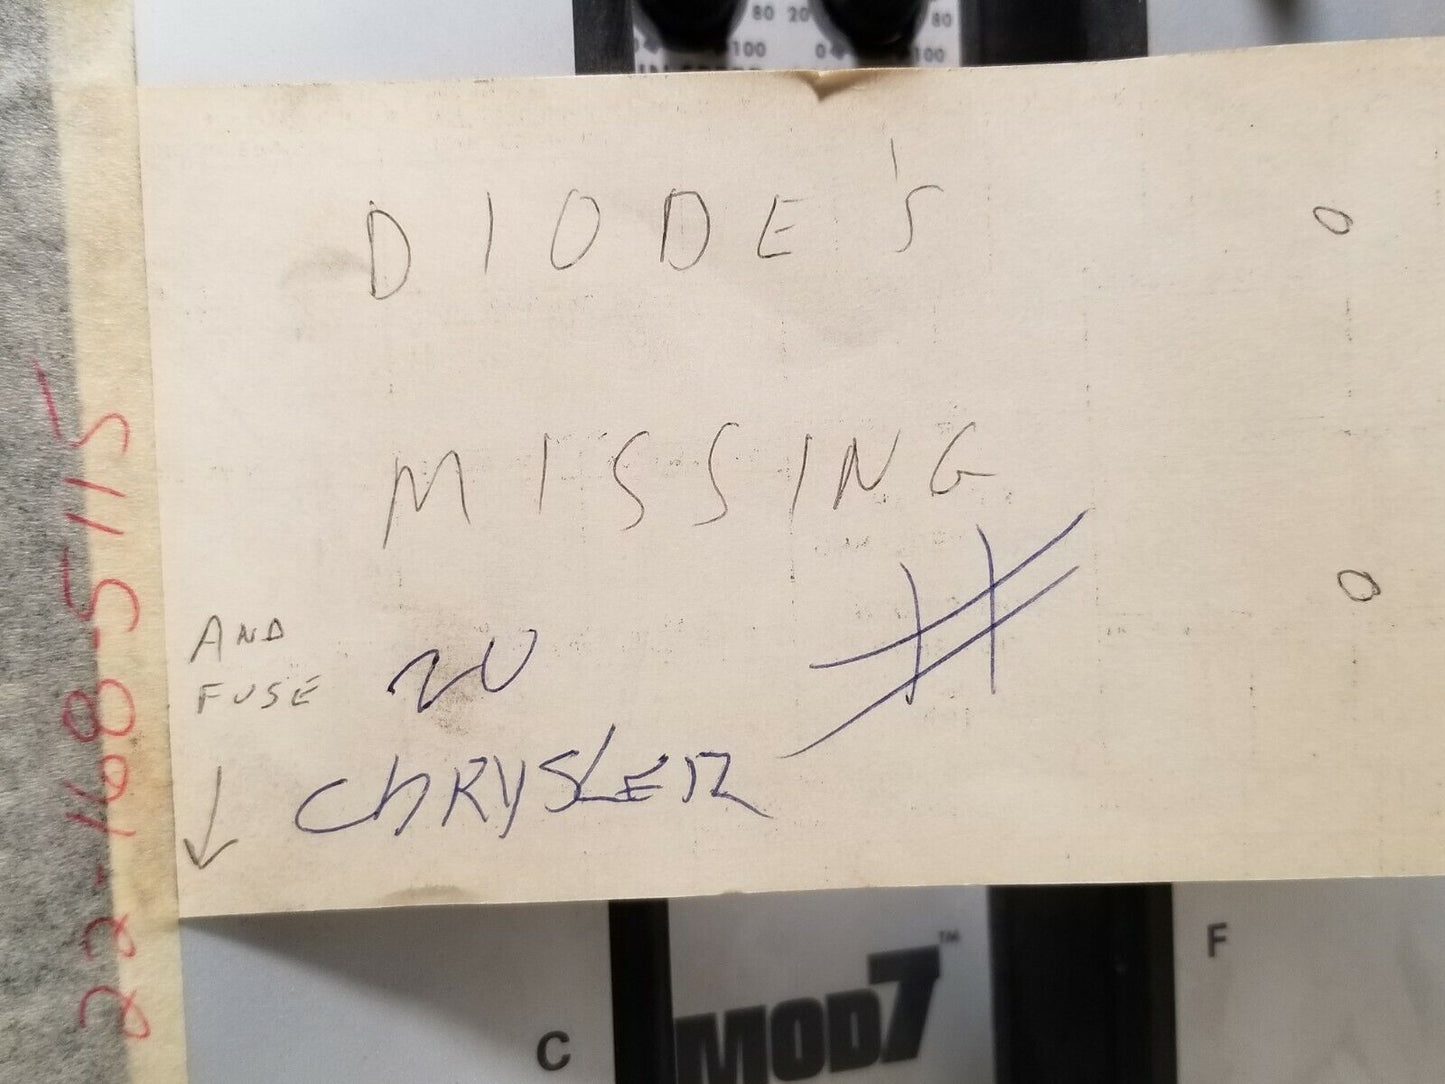 80 20 80
0 100 0 100
DIODE'S
MISSING
AND
FUSE
20
#
CHRYSLER
22-168-5-115
MOD7™
C
F